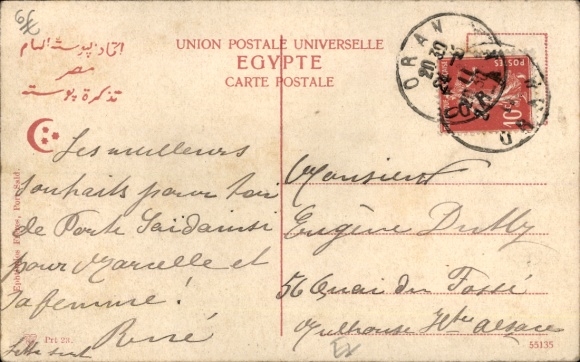 اتحاد پوستة العام
مصر
تذكرة پوستة
UNION POSTALE UNIVERSELLE
EGYPTE
CARTE POSTALE
ORAN
20 30
ORAN
POSTES
10
Les meilleurs
souhaits pour toi
de Porte Saïd ainsi
pour Marcelle et
ta femme!
René
Lettre suit
Monsieur
Eugène
56 Quai du Fossé
Mulhouse Hte Alsace
Frères, Port-Said.
Prt 23.
55135